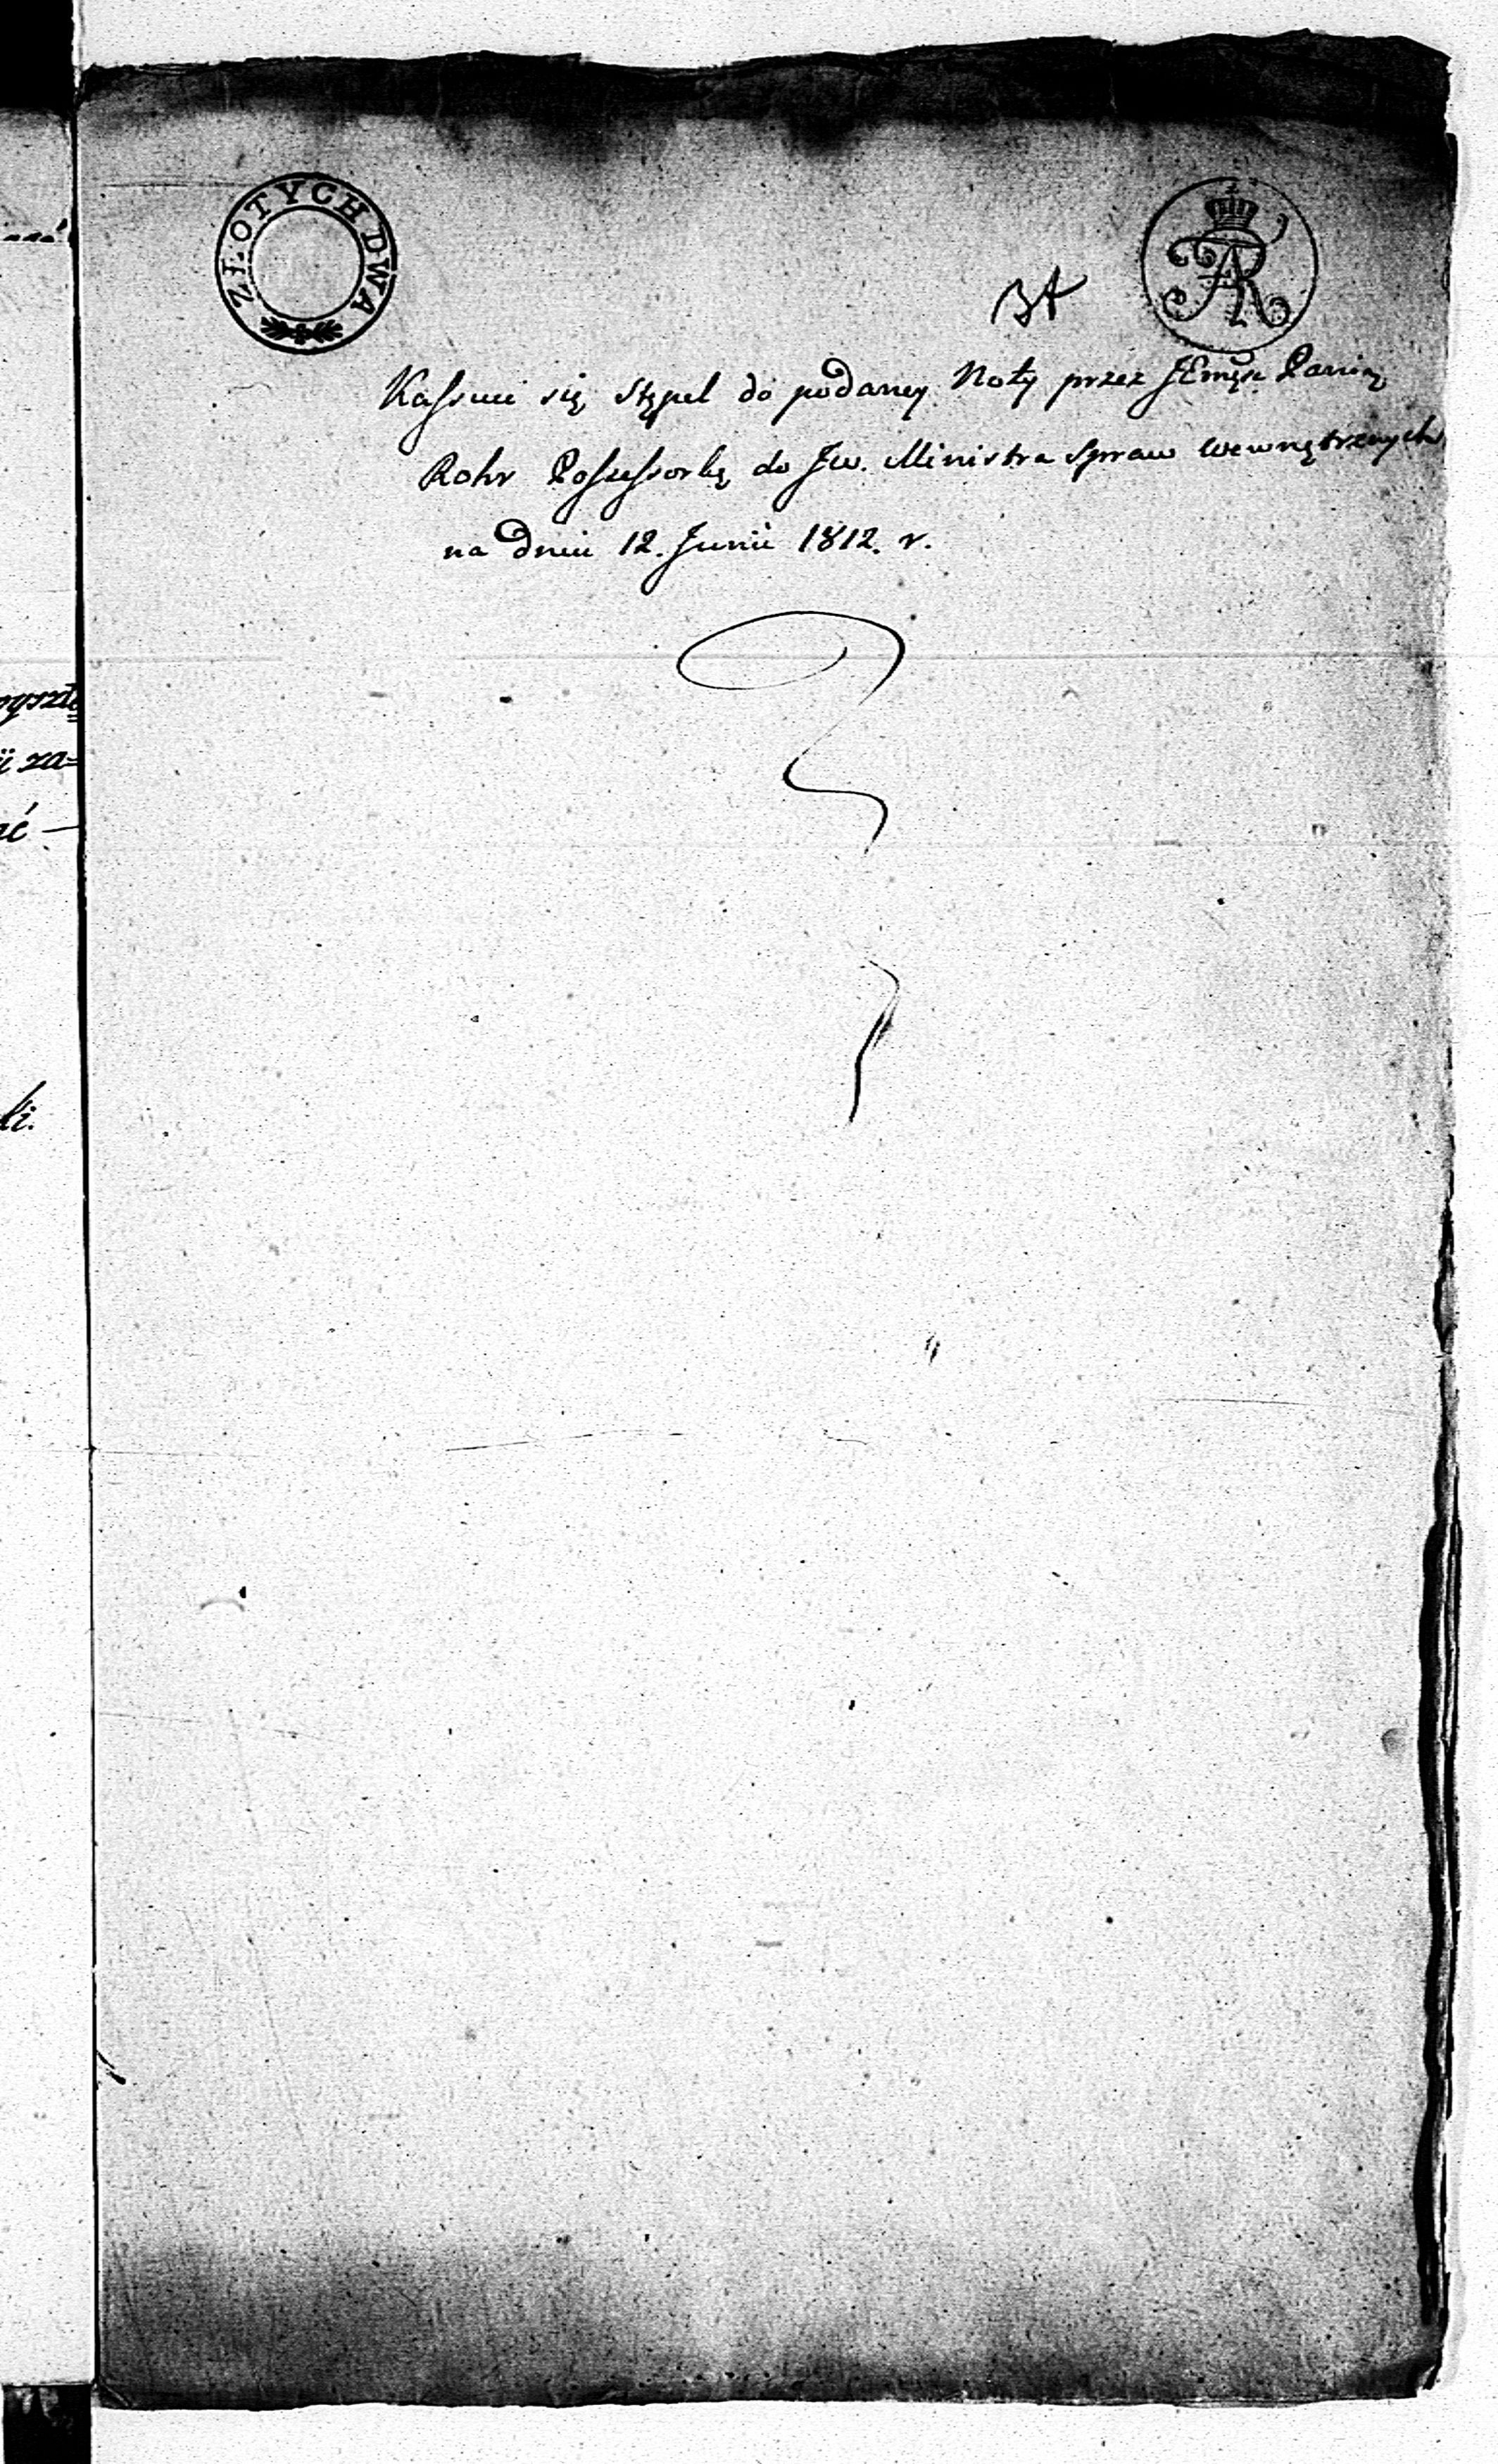 ZŁOTYCH DWA
FAR
34
Kassuie się stępel do podaney Noty przez JEmęść Panią
Rohr Possessorkę do JW. Ministra Spraw wewnętrznych
na dniu 12. Junii 1812. r.